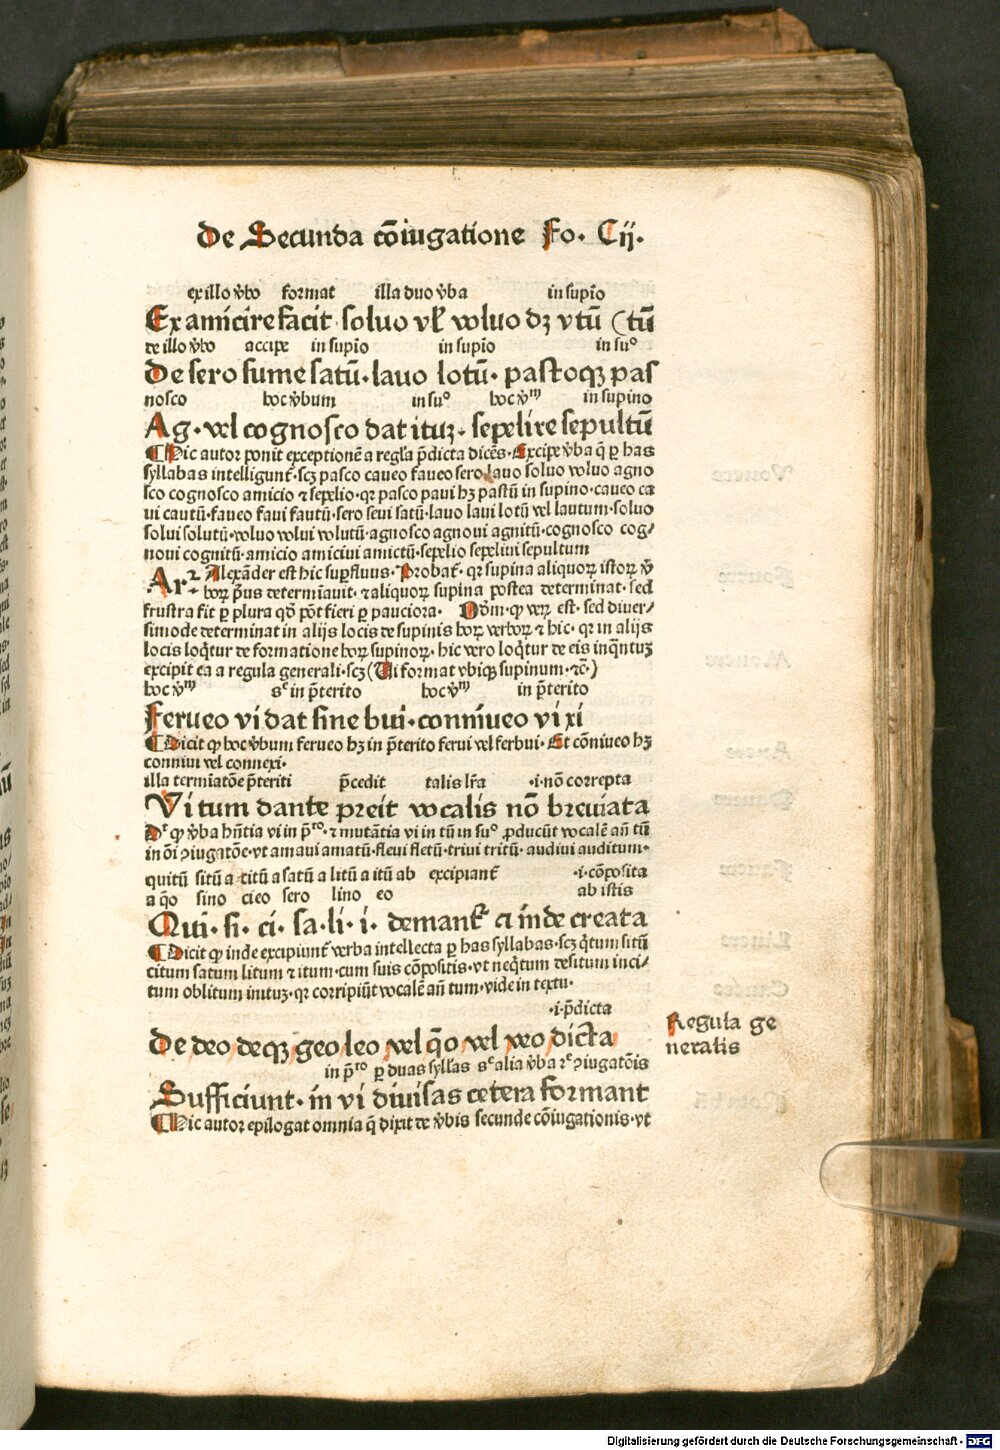 De Secunda cōiugatione Fo. Cij.
ex illo v̄bo format illa duo v̄ba in supīo
Ex amicire facit soluo vl̄ voluo dꝫ vtū (tū
de illo v̄bo accipe in supīo in supīo in su°
De sero sume satū. lauo lotū. pastoqꝫ pas
nosco hoc v̄bum in su° hoc v̄ᵐ in supino
Ag. vel cognosco dat ituꝫ. sepelire sepultū
¶ Hic autor ponit exceptionē a regl̄a p̄dicta dicēs. Excipe v̄ba q̄ ꝑ has
syllabas intelligunt̄. scꝫ pasco caueo faueo sero lauo soluo voluo agno
sco cognosco amicio ⁊ sepelio. qꝛ pasco paui hꝫ pastū in supino. caueo ca
ui cautū. faueo faui fautū. sero seui satū. lauo laui lotū vel lautum. soluo
solui solutū. voluo volui volutū. agnosco agnoui agnitū. cognosco cog/
noui cognitū. amicio amiciui amictū. sepelio sepeliui sepultum
Arꝛ. Alexāder est hic suꝑfluus. Probat̄. qꝛ supina aliquoꝝ istoꝝ v̄
boꝝ pͥus determiauit. ⁊ aliquoꝝ supina postea determinat. sed
frustra fit ꝑ plura qd̄ pōt fieri ꝑ pauciora. Dōm. ꝙ veꝝ est. sed diuer/
simode determinat in alijs locis de supinis hoꝝ verboꝝ ⁊ hic. qꝛ in alijs
locis loq̄tur de formatione hoꝝ supinoꝝ. hic vero loq̄tur de eis inq̄ntuꝫ
excipit ea a regula generali. scꝫ (Ui format vbiqꝫ supinum. ⁊c̄.)
hoc v̄ᵐ sᵉ in p̄terito hoc v̄ᵐ in p̄terito
Ferueo vi dat sine bui. conniueo vi xi
¶ Dicit ꝙ hoc v̄bum ferueo hꝫ in p̄terito ferui vel ferbui. Et cōniueo hꝫ
conniui vel connexi.
illa termiatōe p̄teriti p̄cedit talis lr̄a .i. nō correpta
Vi tum dante preit vocalis nō breuiata
Dʳ ꝙ v̄ba hn̄tia vi in p̄ᵗᵒ. ⁊ mutātia vi in tū in su° ꝓducūt vocalē añ tū
in ōi ɔiugatōe. vt amaui amatū. fleui fletū. triui tritū. audiui auditum.
quitū sitū a citū a satū a litū a itū ab excipiant̄ .i. cōposita
a q̄o sino cieo sero lino eo ab istis
Qui. si. ci. sa. li. i. demant̄ ꝗ inde creata
¶ Dicit ꝙ inde excipiunt̄ verba intellecta ꝑ has syllabas. scꝫ q̄tum sitū
citum satum litum ⁊ itum. cum suis cōpositis. vt neq̄tum desitum inci/
tum oblitum inituꝫ. qꝛ corripiūt vocalē añ tum. vide in textu.
.i. p̄dicta
De deo deqꝫ geo leo vel q̄o vel veo dicta
in p̄ᵗᵒ ꝑ duas syll̄as sᵉ alia v̄ba ɔiugatōis
Sufficiunt. in vi diuisas cetera formant
¶ Hic autor epilogat omnia q̄ dixit de v̄bis secunde cōiugationis. vt
Regula ge
neralis